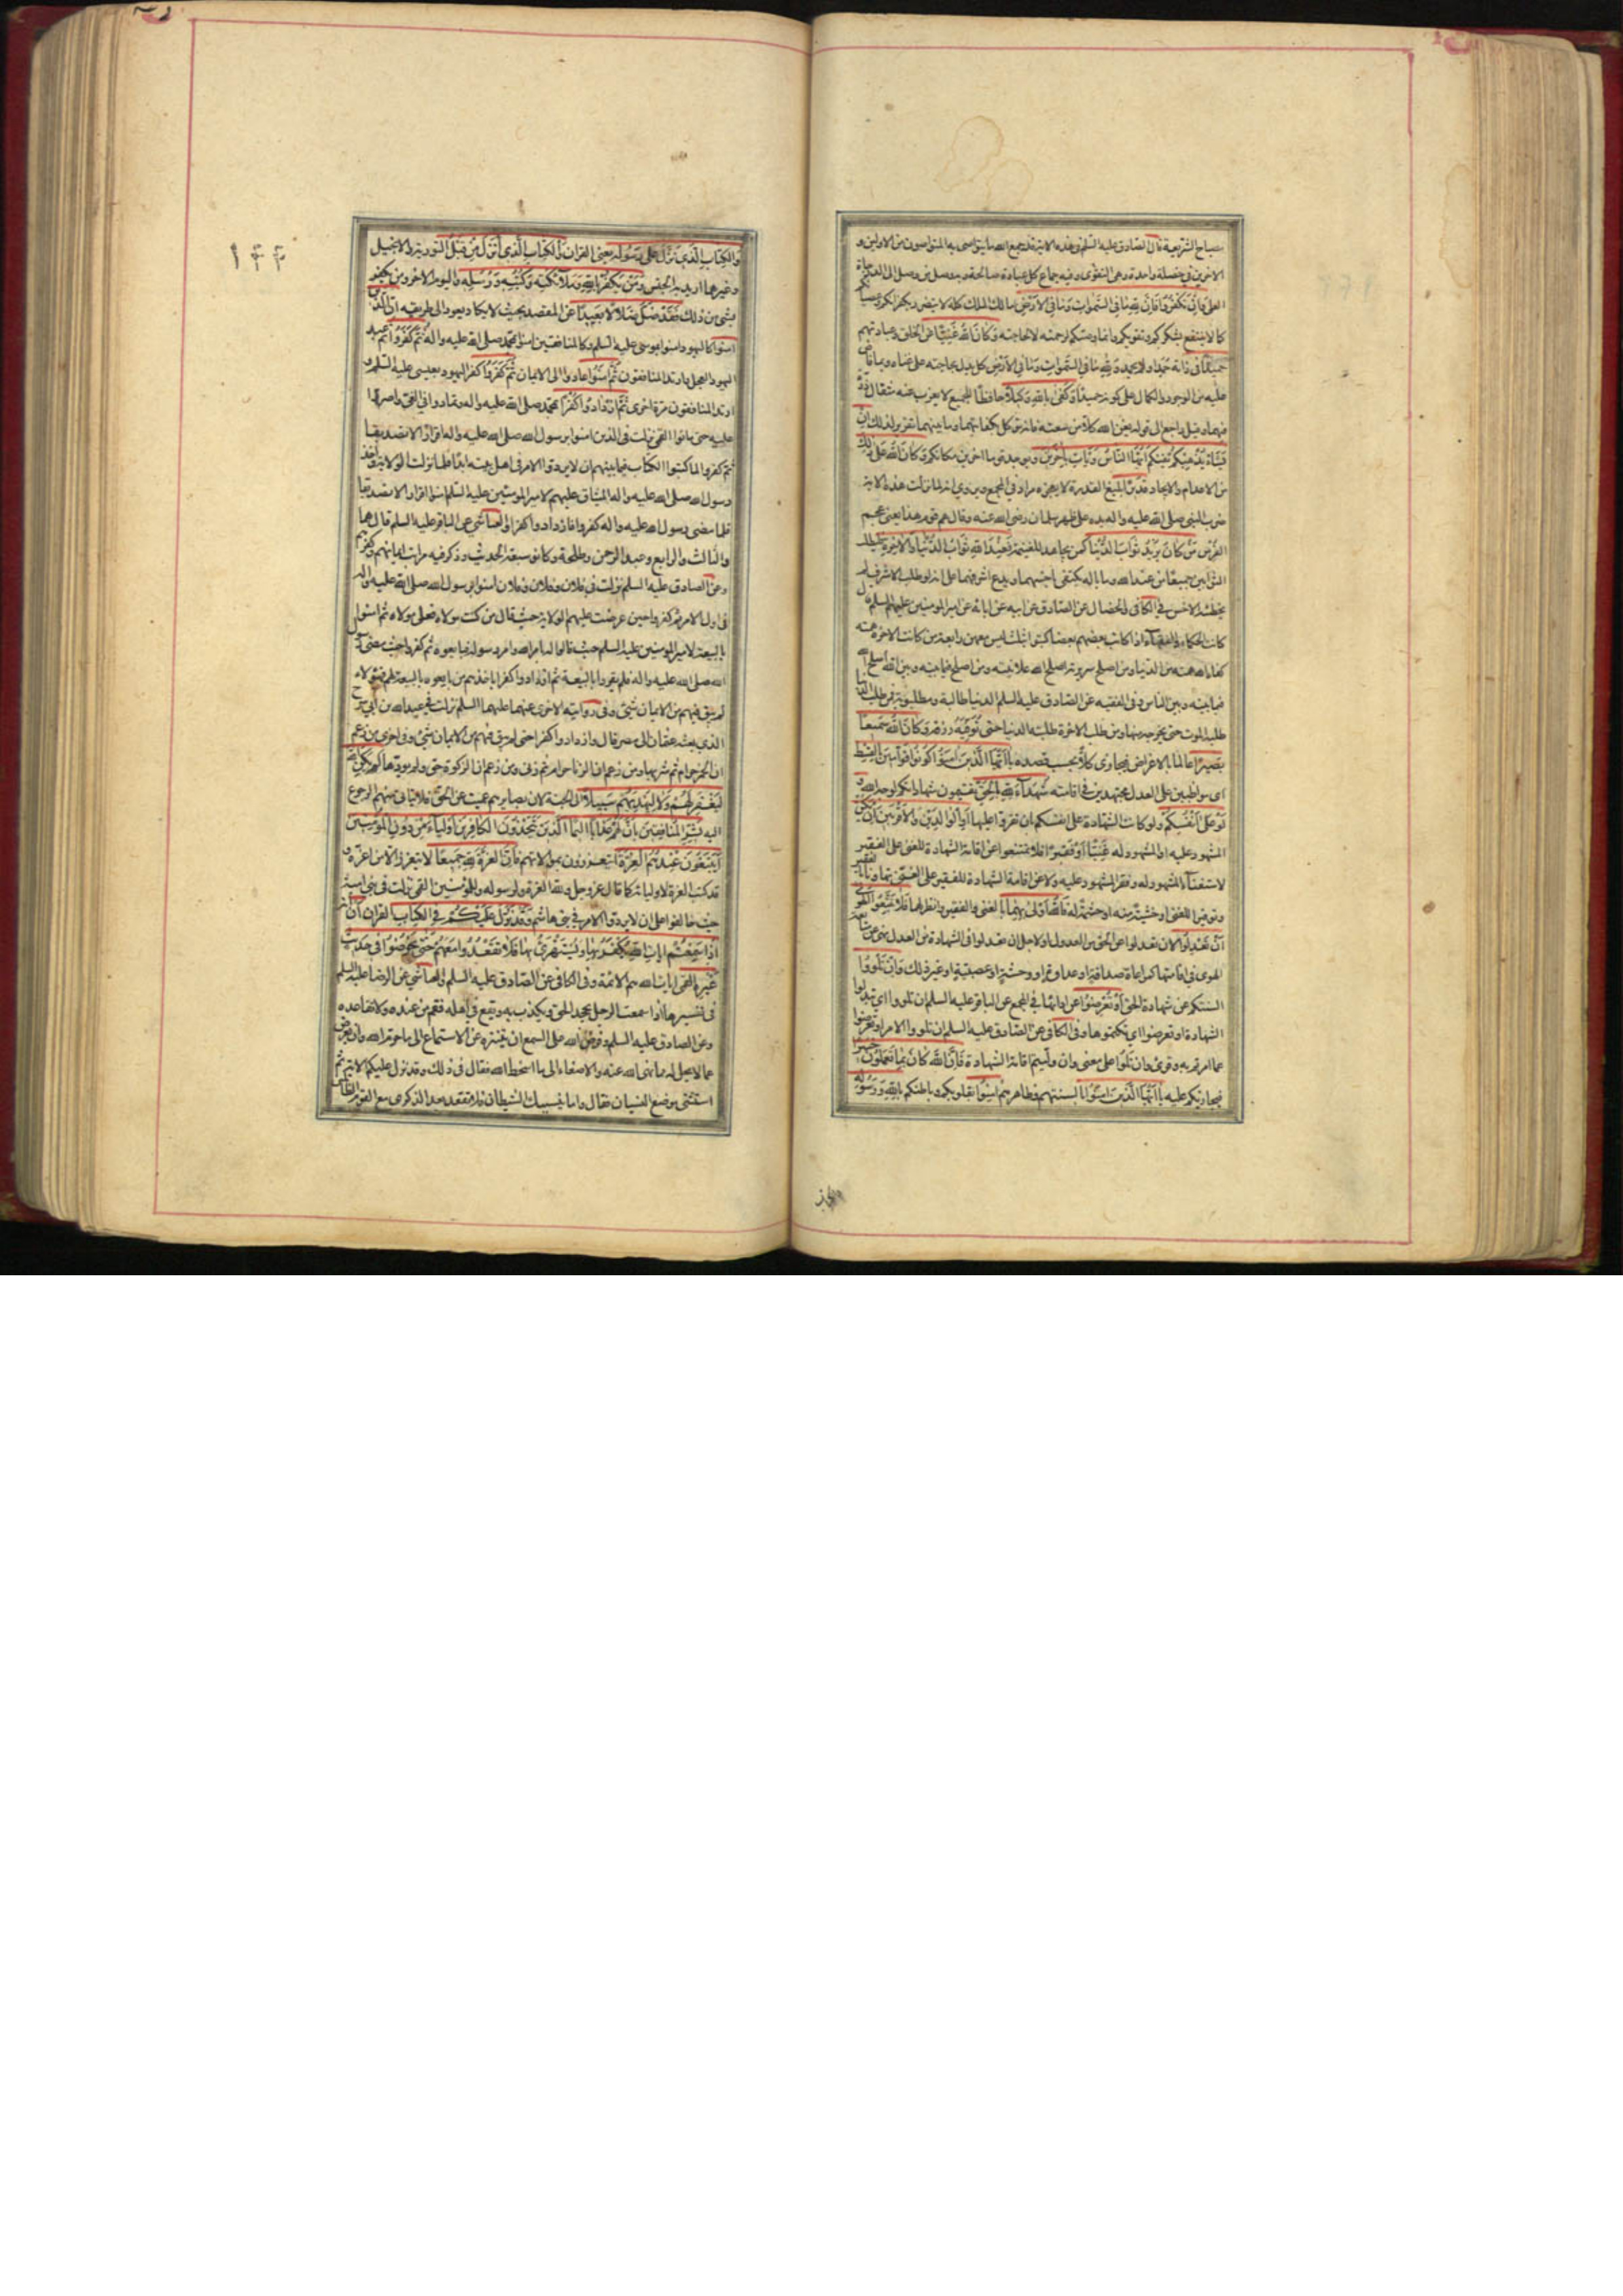 مصباح الشريعة قال الصادق عليه السلم في هذه الاية قد جمع الله ما يتواصى به المتواصون من الاولين و
الاخرين في خصلة واحدة وهي التقوى وفيه جماع كل عبادة صالحة وبه وصل من وصل الى الدرجات
العلى وَاِنْ تَكْفُرُوا فَاِنَّ لِلّٰهِ مَا فِي السَّمٰوَاتِ وَمَا فِي الْاَرْضِ مالك الملك كله لا يتضرر بكفركم وعصيانكم
كما لا ينتفع بشكركم وتقويكم وانما وصيكم لرحمته لا لحاجته وَكَانَ اللّٰهُ غَنِيًّا عن الخلق وعبادتهم
حَمِيدًا في ذاته حمد او لم يحمد وَلِلّٰهِ مَا فِي السَّمٰوَاتِ وَمَا فِي الْاَرْضِ كل يدل بحاجته على غناه وبما فاض
عليه من الوجود والكمال على كونه حميدا وَكَفٰى بِاللّٰهِ وَكِيلًا حافظا للجميع لا يعزب عنه مثقال ذرة
فيهما وقيل راجع الى قوله يغن الله كلا من سعته فانه توكل بكفايتهما وما بينهما تقرير لذلك اِنْ
يَشَأْ يُذْهِبْكُمْ يفنكم اَيُّهَا النَّاسُ وَيَأْتِ بِاٰخَرِينَ ويوجد قوما اخرين مكانكم وَكَانَ اللّٰهُ عَلٰى ذٰلِكَ
من الاعدام والايجاد قَدِيرًا بليغ القدرة لا يعجزه مراد في المجمع ويروى انه لما نزلت هذه الاية
ضرب النبي صلى الله عليه واله يده على ظهر سلمان رضى الله عنه وقال هم قوم هذا يعني عجم
الفرس مَنْ كَانَ يُرِيدُ ثَوَابَ الدُّنْيَا كمن يجاهد للغنيمة فَعِنْدَ اللّٰهِ ثَوَابُ الدُّنْيَا وَالْاٰخِرَةِ فليطلب
الثوابين جميعا من عند الله وما باله يكتفي باخسهما ويدع اشرفهما على انه لو طلب الاشرف لم
يخطئه الاخس في الكافي والخصال عن الصادق عن ابيه عن ابائه عن امير المؤمنين عليهم السلم قال
كانت الحكماء والفقهاء اذا كاتب بعضهم بعضا كتبوا بثلث ليس معهن رابعة من كانت الاخرة همته
كفاه الله همته من الدنيا ومن اصلح سريرته اصلح الله علانيته ومن اصلح فيما بينه وبين الله اصلح الله
فيما بينه وبين الناس وفي الفقيه عن الصادق عليه السلم الدنيا طالبة ومطلوبة فمن طلب الدنيا
طلبه الموت حتى يخرجه منها ومن طلب الاخرة طلبته الدنيا حتى توفيه رزقه وَكَانَ اللّٰهُ سَمِيعًا
بَصِيرًا عالما بالاغراض فيجازي كلا بحسب قصده يَا اَيُّهَا الَّذِينَ اٰمَنُوا كُونُوا قَوَّامِينَ بِالْقِسْطِ
اى مواظبين على العدل مجتهدين في اقامته شُهَدَاءَ لِلّٰهِ بالحق تقيمون شهاداتكم لوجه الله وَ
لَوْ عَلٰى اَنْفُسِكُمْ ولو كانت الشهادة على انفسكم بان تقروا عليها اَوِ الْوَالِدَيْنِ وَالْاَقْرَبِينَ اِنْ يَكُنْ
المشهود عليه او المشهود له غَنِيًّا اَوْ فَقِيرًا فلا تمتنعوا عن اقامة الشهادة للغنى على الفقير
لاستغناء المشهود له وفقر المشهود عليه ولا عن اقامة الشهادة للفقير على الغنى تهاونا بالفقير
وتوقيرا للغنى او خشية منه او حشمة له فَاللّٰهُ اَوْلٰى بِهِمَا بالغنى والفقير وانظر لهما فَلَا تَتَّبِعُوا الْهَوٰى
اَنْ تَعْدِلُوا لان تعدلوا عن الحق من العدول او لاجل ان تعدلوا في الشهادة من العدل نهى عن متابعة
الهوى في اقامتها كمراعاة صداقة او عداوة او وحشة او عصبية او غير ذلك وَاِنْ تَلْوُوا
السنتكم عن شهادة الحق اَوْ تُعْرِضُوا عن ادائها في المجمع عن الباقر عليه السلم ان تلووا اى تبدلوا
الشهادة او تعرضوا اى تكتموها وفي الكافي عن الصادق عليه السلم ان تلووا الامر او تعرضوا
عما امرتم به وقرئ وان تلوا على معنى وان وليتم اقامة الشهادة فَاِنَّ اللّٰهَ كَانَ بِمَا تَعْمَلُونَ خَبِيرًا
فيجازيكم عليه يَا اَيُّهَا الَّذِينَ اٰمَنُوا بالسنتهم وظاهرهم اٰمِنُوا بقلوبكم وباطنكم بِاللّٰهِ وَرَسُولِهِ
۱۴۴
وَالْكِتَابِ الَّذِي نَزَّلَ عَلٰى رَسُولِهِ يعني القران وَالْكِتَابِ الَّذِي اَنْزَلَ مِنْ قَبْلُ التورية والانجيل
وغيرهما اريد به الجنس وَمَنْ يَكْفُرْ بِاللّٰهِ وَمَلٰائِكَتِهِ وَكُتُبِهِ وَرُسُلِهِ وَالْيَوْمِ الْاٰخِرِ ومن يكفر
بشئ من ذلك فَقَدْ ضَلَّ ضَلَالًا بَعِيدًا عن المقصد بحيث لا يكاد يعود الى طريقه اِنَّ الَّذِينَ
اٰمَنُوا كاليهود امنوا بموسى عليه السلم وكالمنافقين امنوا بمحمد صلى الله عليه واله ثُمَّ كَفَرُوا ثم عبد
اليهود العجل وارتد المنافقون ثُمَّ اٰمَنُوا عادوا الى الايمان ثُمَّ كَفَرُوا كفر اليهود بعيسى عليه السلم و
ارتد المنافقون مرة اخرى ثُمَّ ازْدَادُوا كُفْرًا بمحمد صلى الله عليه واله وتمادوا في الغي واصروا
عليه حتى ماتوا القمي نزلت في الذين امنوا برسول الله صلى الله عليه واله اقرارا لا تصديقا
ثم كفروا لما كتبوا الكتاب فيما بينهم ان لا يردوا الامر في اهل بيته ابدا فلما نزلت الولاية واخذ
رسول الله صلى الله عليه واله الميثاق عليهم لامير المؤمنين عليه السلم امنوا اقرارا لا تصديقا
فلما مضى رسول الله صلى الله عليه واله كفروا فازدادوا كفرا والعياشي عن الباقر عليه السلم قال هما
والثالث والرابع وعبد الرحمن وطلحة وكانوا سبعة الحديث وذكر فيه مراتب ايمانهم وكفرهم
وعن الصادق عليه السلم نزلت في فلان وفلان وفلان امنوا برسول الله صلى الله عليه واله
في اول الامر ثم كفروا حين عرضت عليهم الولاية حيث قال من كنت مولاه فعلى مولاه ثم امنوا
بالبيعة لامير المؤمنين عليه السلم حيث قالوا له بامر الله وامر رسوله فبايعوه ثم كفروا حيث مضى رسول
الله صلى الله عليه واله فلم يقروا بالبيعة ثم ازدادوا كفرا باخذهم من بايعوه بالبيعة لهم فهؤلاء
لم يبق فيهم من الايمان شئ وفي رواية الاخرى عنهما عليهما السلم نزلت في عبد الله بن ابي سرح
الذي بعثه عثمان الى مصر قال وازدادوا كفرا حتى لم يبق فيهم من الايمان شئ وفي اخرى من زعم
ان الخمر حرام ثم شربها ومن زعم ان الزنا حرام ثم زنى ومن زعم ان الزكوة حق ولم يؤدها لَمْ يَكُنِ اللّٰهُ
لِيَغْفِرَ لَهُمْ وَلَا لِيَهْدِيَهُمْ سَبِيلًا الى الجنة لان بصايرهم عميت عن الحق فلا يتاتى منهم الرجوع
اليه بَشِّرِ الْمُنَافِقِينَ بِاَنَّ لَهُمْ عَذَابًا اَلِيمًا الَّذِينَ يَتَّخِذُونَ الْكَافِرِينَ اَوْلِيَاءَ مِنْ دُونِ الْمُؤْمِنِينَ
اَيَبْتَغُونَ عِنْدَهُمُ الْعِزَّةَ ايتعززون بموالاتهم فَاِنَّ الْعِزَّةَ لِلّٰهِ جَمِيعًا لا يتعزز الا من اعزه و
قد كتب العزة لاوليائه كما قال عز وجل ولله العزة ولرسوله وللمؤمنين القمي نزلت في بني امية
حيث خالفوا على ان لا يردوا الامر في بني هاشم وَقَدْ نَزَّلَ عَلَيْكُمْ فِي الْكِتَابِ القران اَنْ
اِذَا سَمِعْتُمْ اٰيَاتِ اللّٰهِ يُكْفَرُ بِهَا وَيُسْتَهْزَأُ بِهَا فَلَا تَقْعُدُوا مَعَهُمْ حَتّٰى يَخُوضُوا فِي حَدِيثٍ
غَيْرِهِ القمي ايات الله هم الائمة وفي الكافي عن الصادق عليه السلم والعياشي عن الرضا عليه السلم
في تفسيرها اذا سمعت الرجل يجحد الحق ويكذب به ويقع في اهله فقم من عنده ولا تقاعده
وعن الصادق عليه السلم وفرض الله على السمع ان يتنزه عن الاستماع الى ما حرم الله وان يعرض
عما لا يحل له مما نهى الله عنه والاصغاء الى ما اسخط الله فقال في ذلك وقد نزل عليكم الاية ثم
استثنى موضع النسيان فقال واما ينسينك الشيطان فلا تقعد بعد الذكرى مع القوم الظالمين